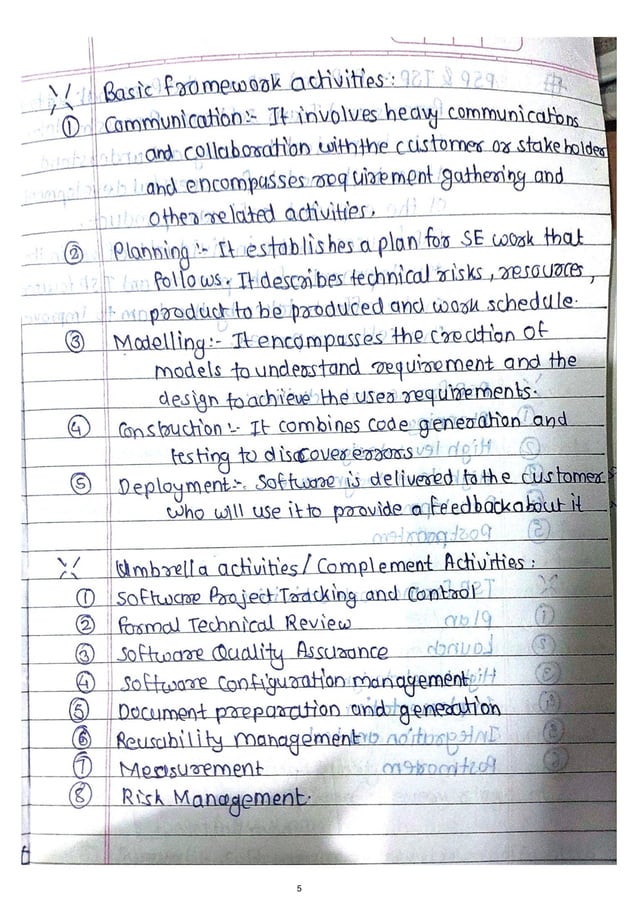 Basic framework activities:
① Communication:- It involves heavy communications
and collaboration with the customer or stakeholder
and encompasses requirement gathering and
other related activities.
② Planning:- It establishes a plan for SE work that
follows. It describes technical risks, resources,
product to be produced and work schedule.
③ Modelling:- It encompasses the creation of
models to understand requirement and the
design to achieve the user requirements.
④ Construction:- It combines code generation and
testing to discover errors
⑤ Deployment:- Software is delivered to the customers
who will use it to provide a feedback about it
Umbrella activities/Complement Activities:
① Software Project Tracking and Control
② Formal Technical Review
③ Software Quality Assurance
④ Software Configuration management
⑤ Document preparation and generation
⑥ Reusability management
⑦ Measurement
⑧ Risk Management.
5